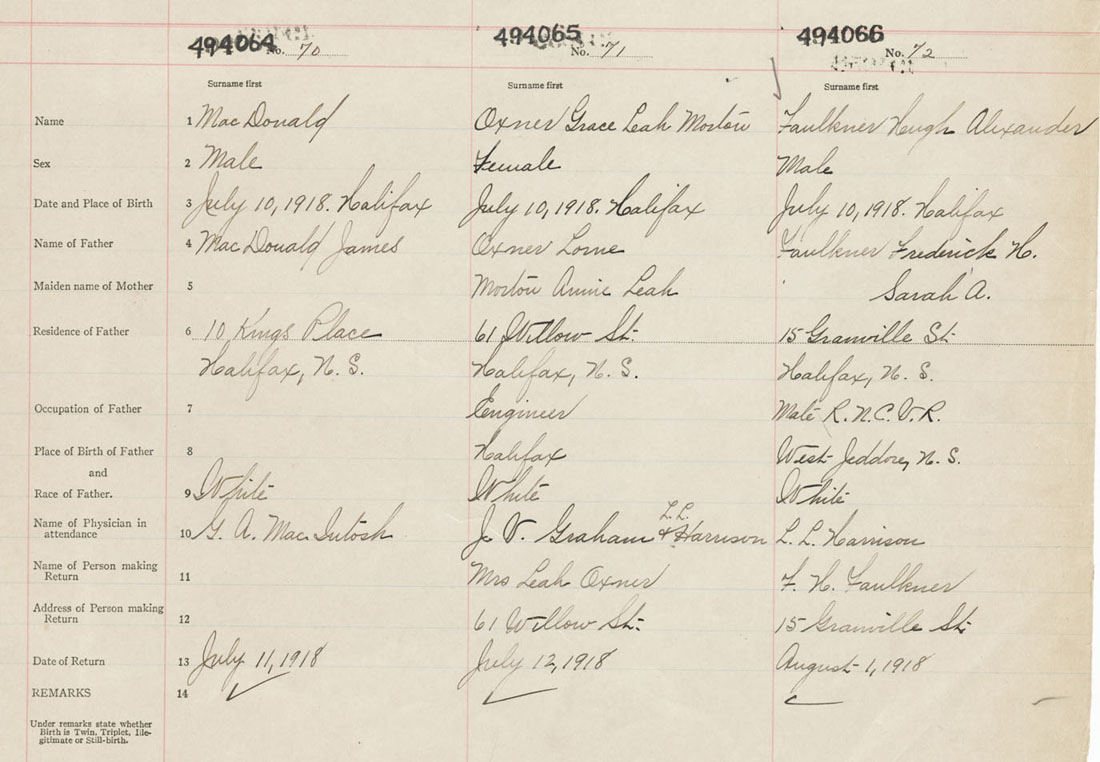 494064 No. 70 494065 No. 71 494066 No. 72
Surname first Surname first Surname first
Name 1 MacDonald Oxner Grace Leah Morton Faulkner Hugh Alexander
Sex 2 Male Female Male
Date and Place of Birth 3 July 10, 1918. Halifax July 10, 1918. Halifax July 10, 1918. Halifax
Name of Father 4 MacDonald James Oxner Lorne Faulkner Frederick H.
Maiden name of Mother 5 Morton Annie Leah Sarah A.
Residence of Father 6 10 Kings Place 61 Willow St. 15 Granville St.
Halifax, N. S. Halifax, N. S. Halifax, N. S.
Occupation of Father 7 Engineer Mate R. N. C. V. R.
Place of Birth of Father 8 Halifax West Jeddore, N. S.
and
Race of Father. 9 White White White
L. L.
Name of Physician in
attendance 10 G. A. MacIntosh J. V. Graham & Harrison L. L. Harrison
Name of Person making
Return 11 Mrs Leah Oxner F. H. Faulkner
Address of Person making
Return 12 61 Willow St. 15 Granville St.
Date of Return 13 July 11, 1918 July 12, 1918 August 1, 1918
REMARKS 14
Under remarks state whether
Birth is Twin, Triplet, Ille-
gitimate or Still-birth.